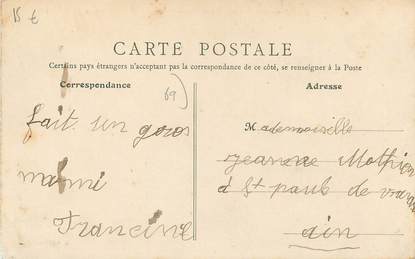 15 €
CARTE POSTALE
Certains pays étrangers n'acceptant pas la correspondance de ce côté, se renseigner à la Poste
Correspondance
69)
fait un gros
mami
Francine
Adresse
Mademoiselle
Jeanne Mathien
à St paul de varax
ain